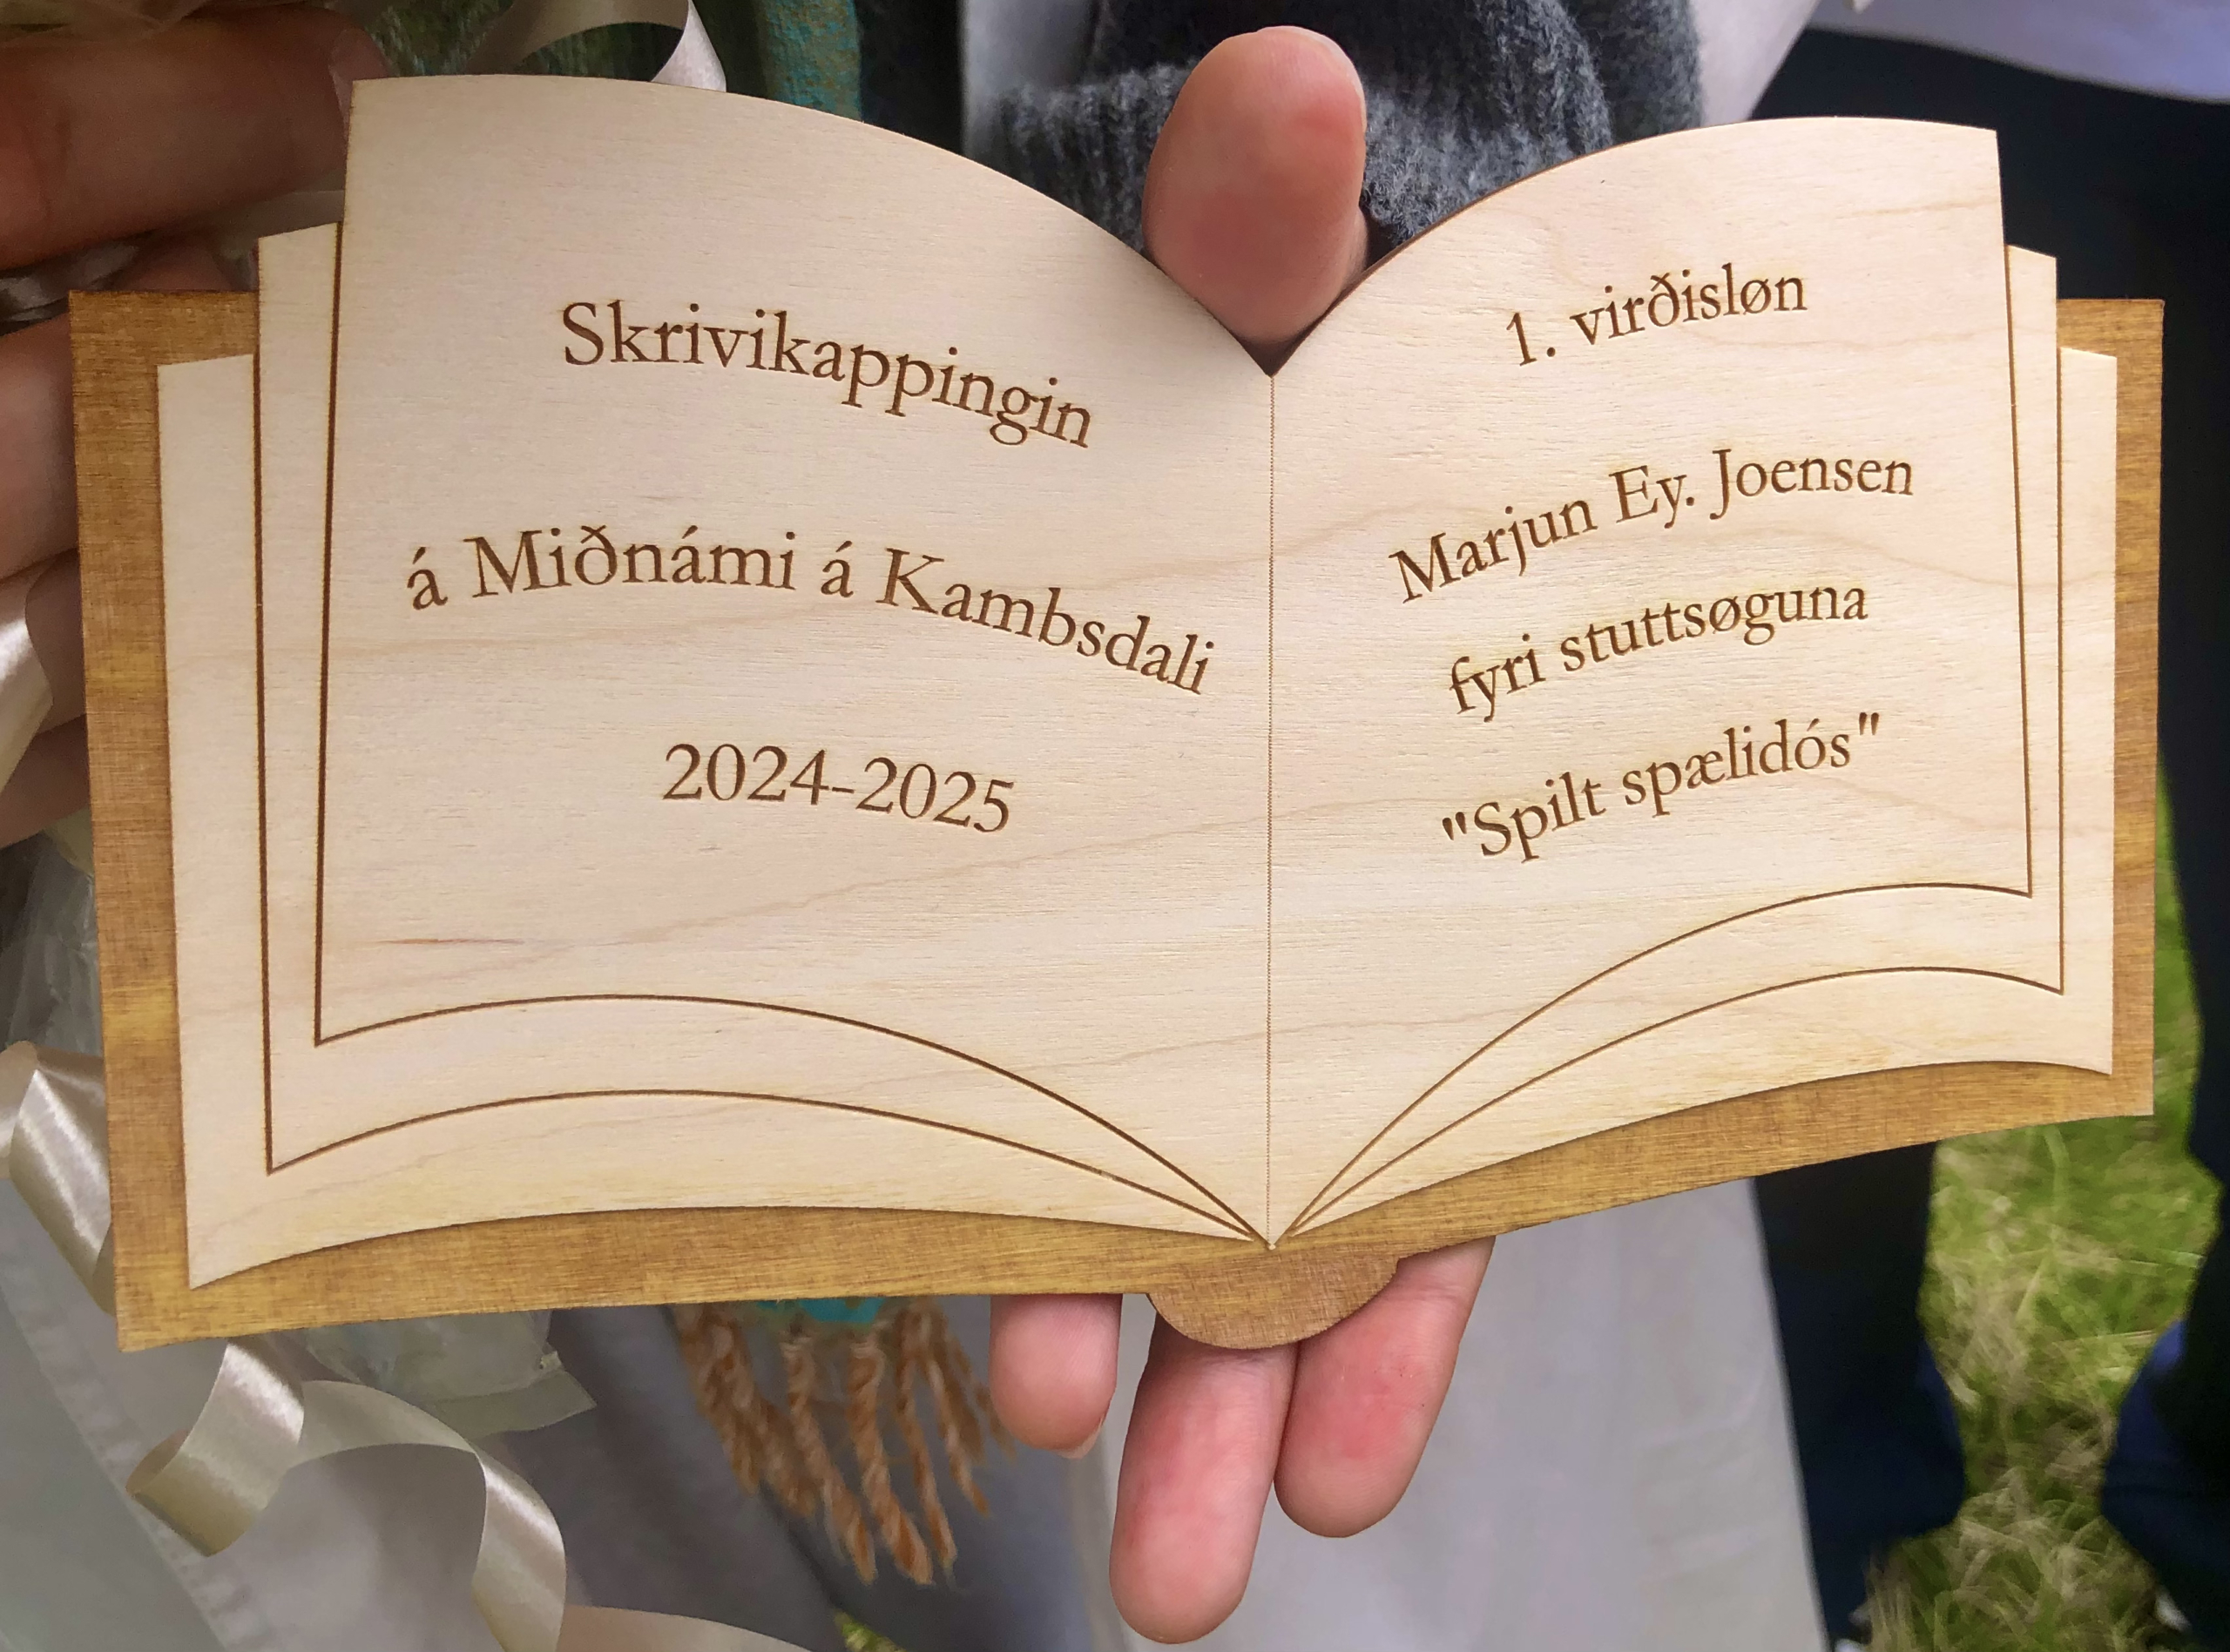 Skrivikappingin
á Miðnámi á Kambsdali
2024-2025
1. virðisløn
Marjun Ey. Joensen
fyri stuttsøguna
"Spilt spælidós"